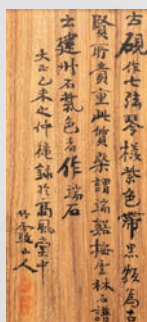 古硯作七弦琴樣紫色帶黑頗為古
賢所貴重此質桼謂端巖按雲林石譜
云建州石氣色者作端石
大正乙未之仲穐錄於高風堂中
山人